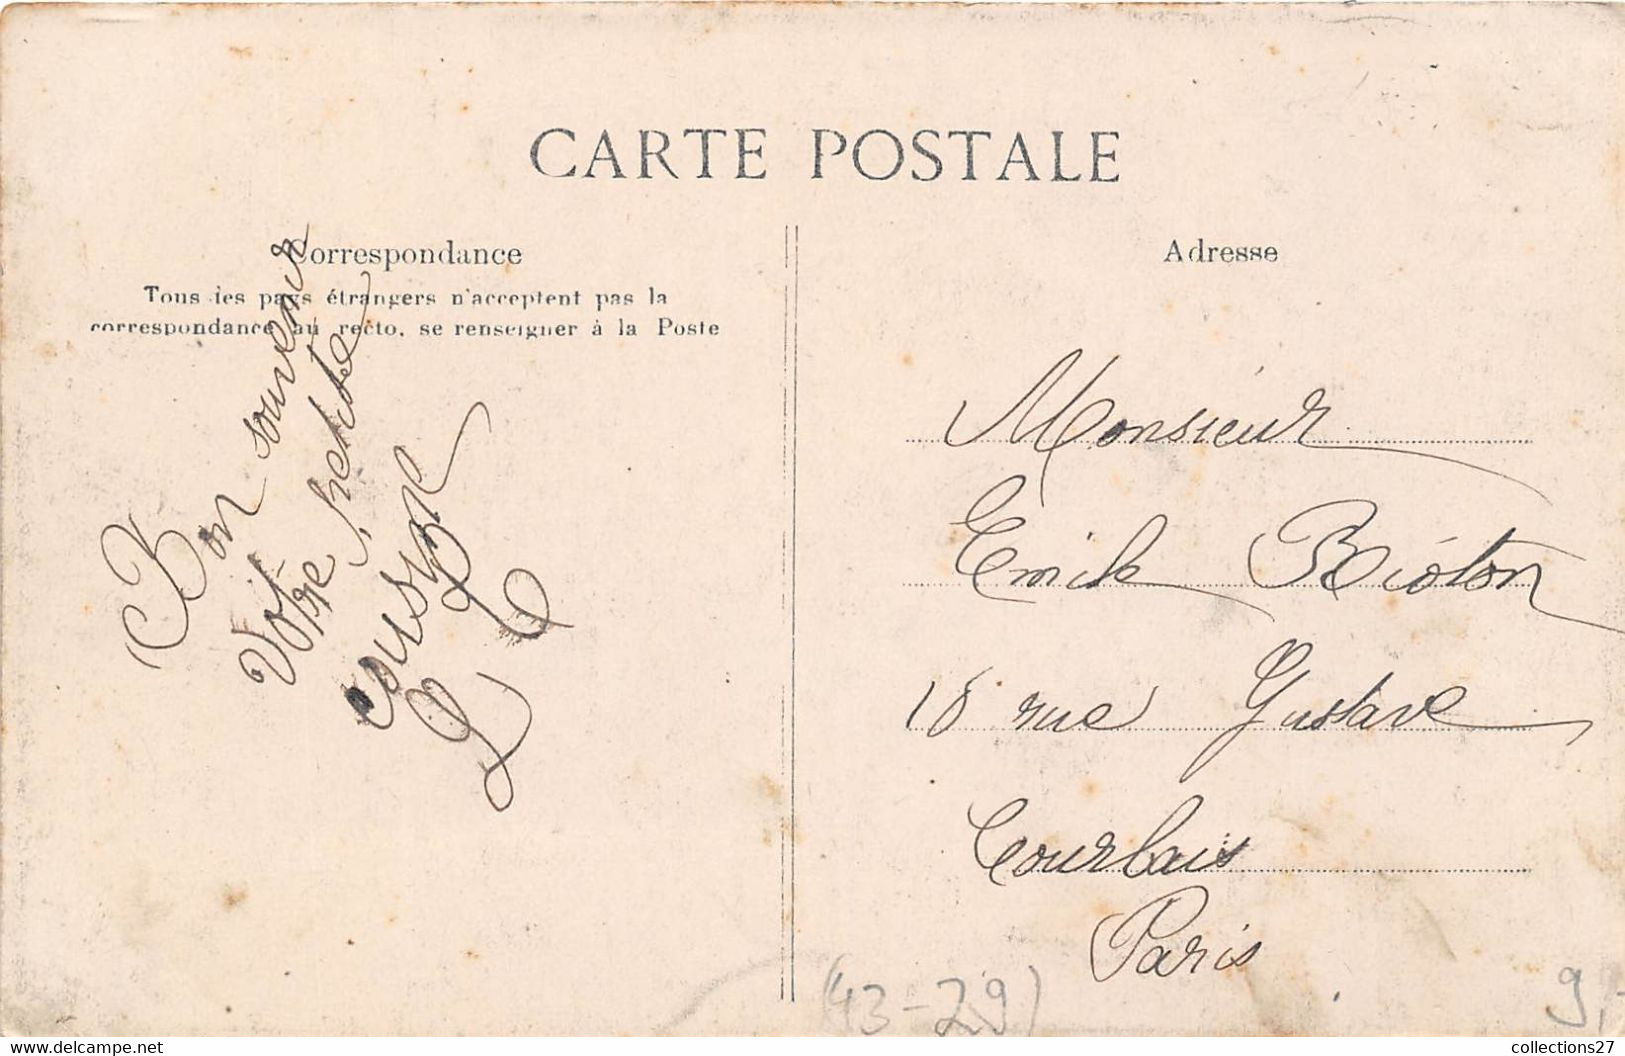 CARTE POSTALE
Correspondance
Tous les pays étrangers n'acceptent pas la
correspondance au recto, se renseigner à la Poste
Bon souvenir
Votre petite
cousine
Adresse
Monsieur
Emile Bioton
18 rue Gustave
Courbais
Paris
(43-29)
9,-
collections27